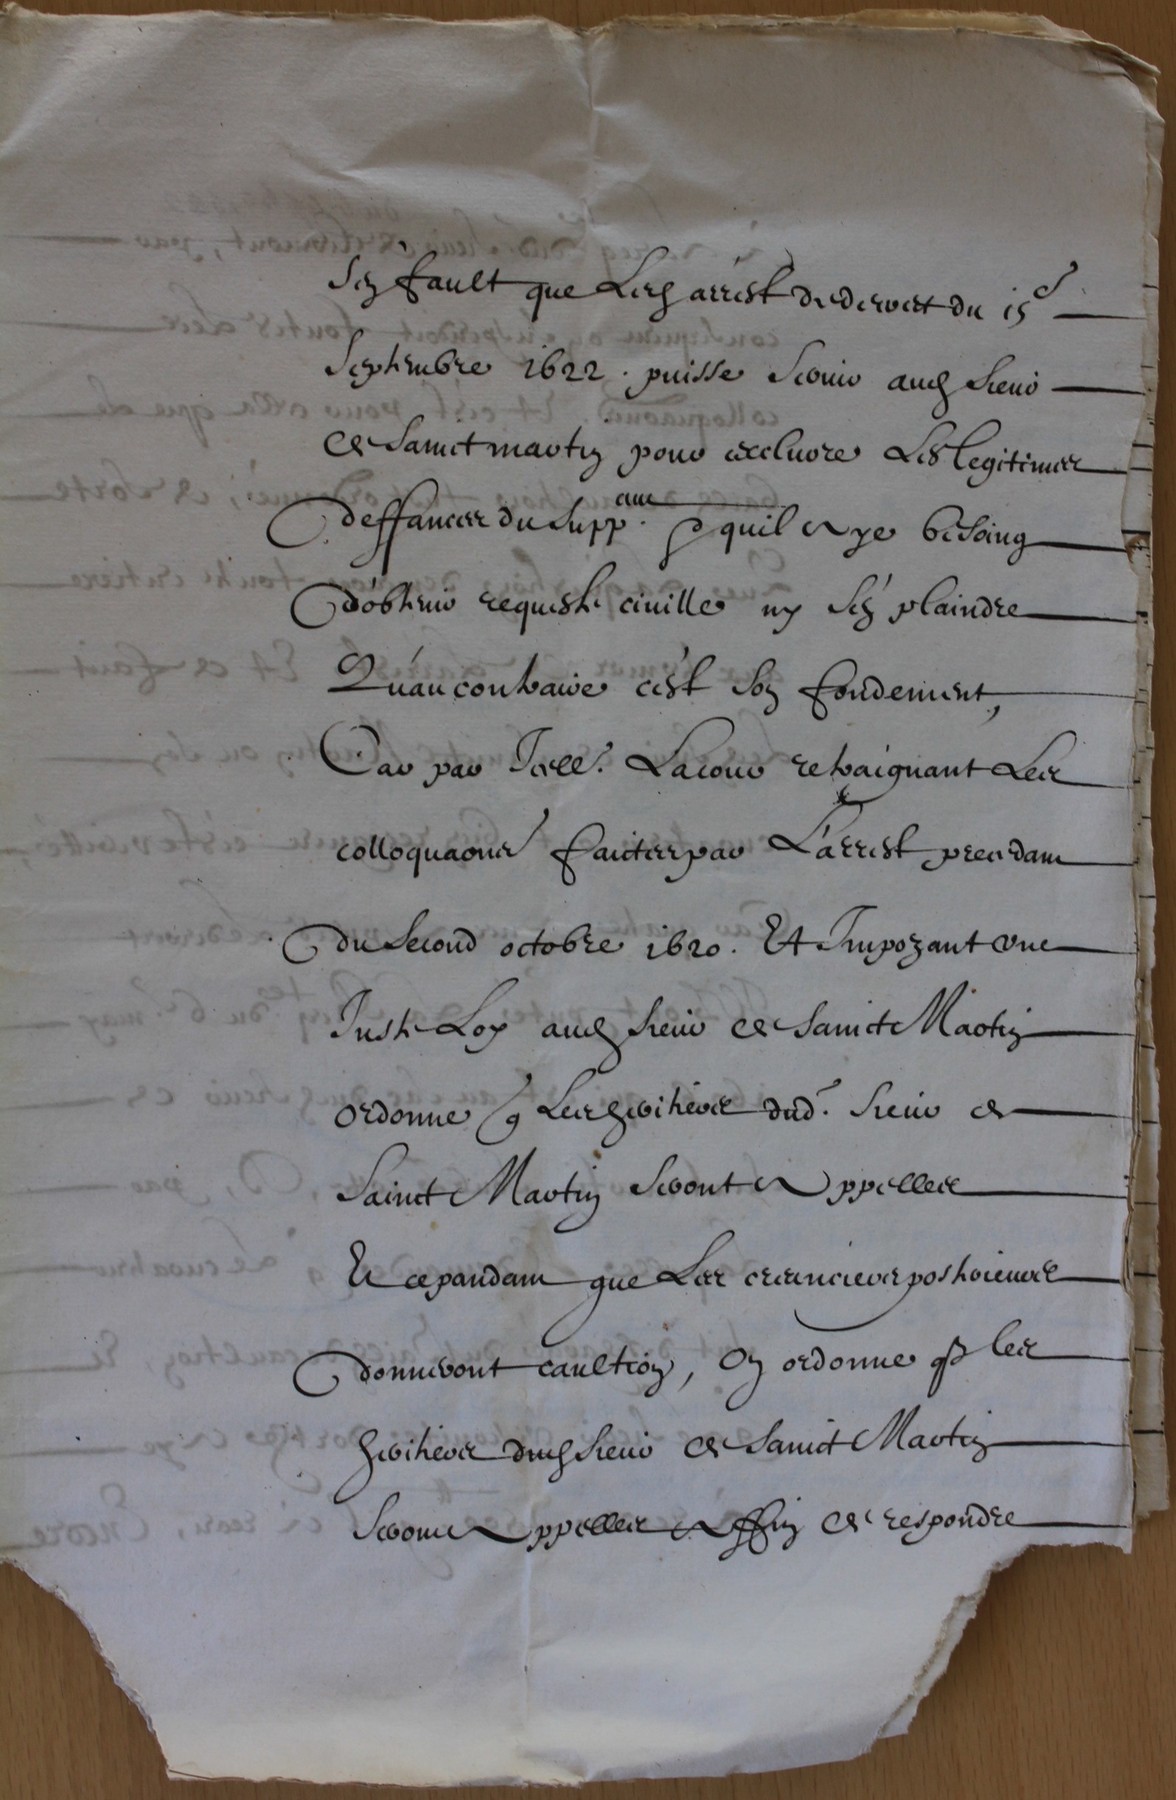 Sen fault que led arrest dudernier du 15e
Septembre 1622. puisse servir aud sieur
de sainct martin pour exclurre Les legitimes
deffances du supp. quil aye besoing
d'obtenir requeste civille ny s'en plaindre
Qu'au contraire c'est son fondement,
Car par Icell. La cour retraignant Les
colloquaons faictes par L'arrest precedam
du second octobre 1620. Et Impozant une
Juste Loy aud sieur de sainct Martin
ordonne q Les heritiers dud. sieur de
Sainct Martin seront appelles
Et cepandam que Les creanciers posterieurs
donneront caultion, On ordonne q les
heritiers dud sieur de sainct Martin
seront appelles affin de respondre